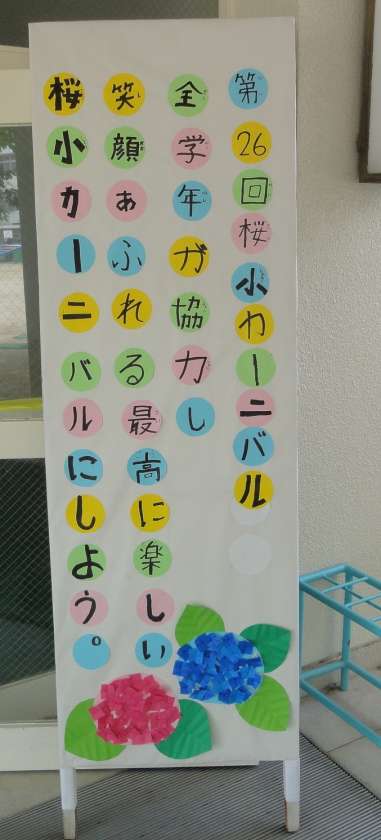 第26回桜小カーニバル
全学年が協力し
笑顔あふれる最高に楽しい
桜小カーニバルにしよう。